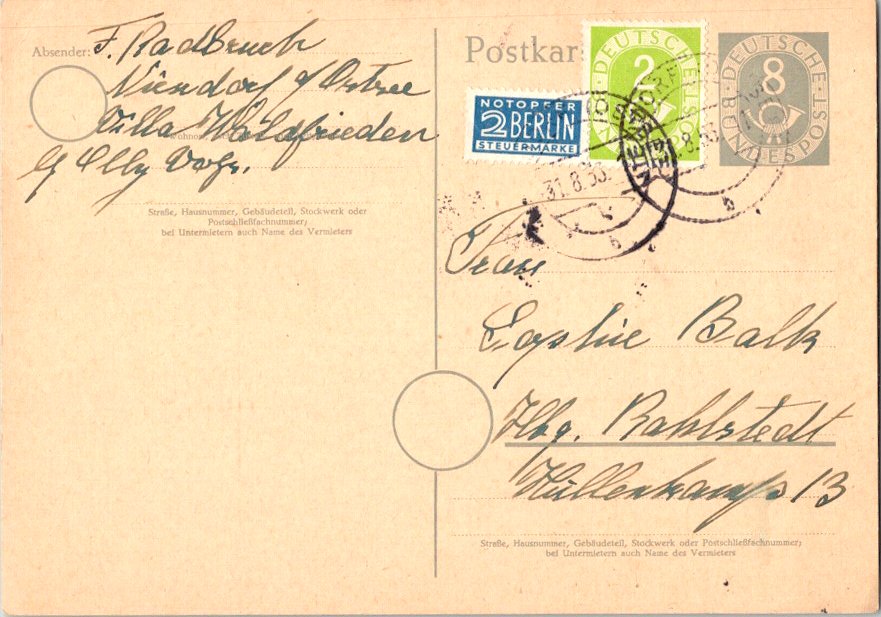 Absender: F. Radbruch
Niendorf a/Ostsee
Villa Waldfrieden
b/ Elly Vogs.
Straße, Hausnummer, Gebäudeteil, Stockwerk oder
Postschließfachnummer;
bei Untermietern auch Name des Vermieters
Postkar
NOTOPFER
2 BERLIN
STEUERMARKE
DEUTSCHE
2
DEUTSCHE
8
BUNDESPOST
31.8.53
b
8.53
b
Frau
Sophie Balk
Hbg. Rahlstedt
Hüllenkamp 13
Straße, Hausnummer, Gebäudeteil, Stockwerk oder Postschließfachnummer;
bei Untermietern auch Name des Vermieters